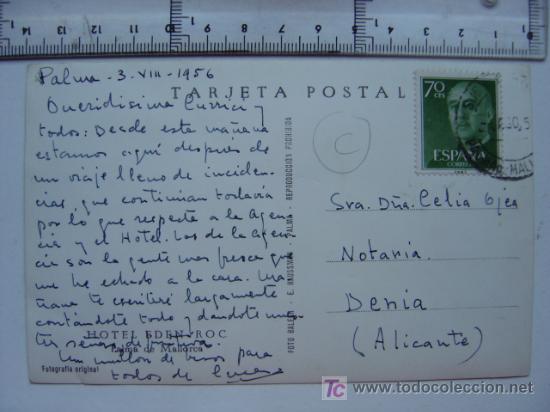 Palma - 3 - VIII - 1956
TARJETA POSTAL
Queridisima y
todos: Desde esta mañana
estamos aquí despues de
un viaje lleno de inciden-
cias, que continúan todavía
por lo que respecta a la Agen-
cia y el Hotel. Los de la Agen-
cia son la gente mas fresca que
me he echado a la cara. Ma-
ñana te escribiré largamente
contándote todo y dándote nues-
tras señas
Un millón de besos para
todos de
HOTEL EDEN ROC
Palma de Mallorca
Fotografía original
FOTO BALEAR - E. HAUSMAN - PALMA - REPRODUCCION PROHIBIDA
C
70 CTS
ESPAÑA
CORREOS
Sra. Dña. Celia
Notaria.
Denia
(Alicante)
todocoleccion
www.todocoleccion.net